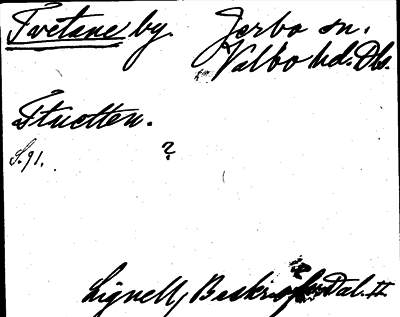 Tvetane by. Jerbo sn.
Valbo hd. Dls.
Stuetten.
S. 91. ?
Lignell, Beskr. öfv. Dal. II